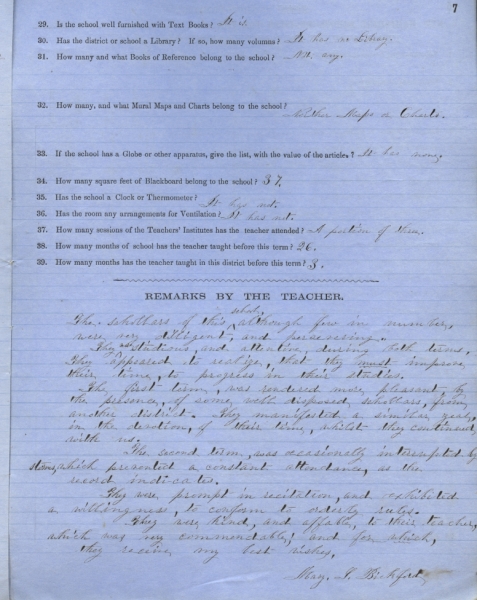 7
29. Is the school well furnished with Text Books? It is.
30. Has the district or school a Library? If so, how many volumes? It has no Library.
31. How many and what Books of Reference belong to the school? Not any.
32. How many, and what Mural Maps and Charts belong to the school?
Neither Maps or Charts.
33. If the school has a Globe or other apparatus, give the list, with the value of the articles? It has none,
34. How many square feet of Blackboard belong to the school? 37.
35. Has the school a Clock or Thermometer? It has not.
36. Has the room any arrangements for Ventilation? It has not.
37. How many sessions of the Teachers' Institutes has the teacher attended? A portion of them.
38. How many months of school has the teacher taught before this term? 26.
39. How many months has the teacher taught in this district before this term? 3.
REMARKS BY THE TEACHER.
school,
The schollars of this, although few in number,
were very diligent, and persevering.
during both terms.
They appeared to realize, that they must improve
their time, to progress in their studies.
The first term, was rendered more pleasant by
the presence, of some well disposed, schollars, from
another district. They manifested a similar zeal,
in the devotion, of their time, whilst they continued
with us.
The second term, was occasionally interrupted by
storms, which prevented a constant attendance, as the
record indicates.
They were prompt in recitation, and exhibited
a willingness, to conform to orderly rules.
They were kind, and affable, to their teacher,
which was very commendable, and for which,
they receive my best wishes.
May. J. Bickford,